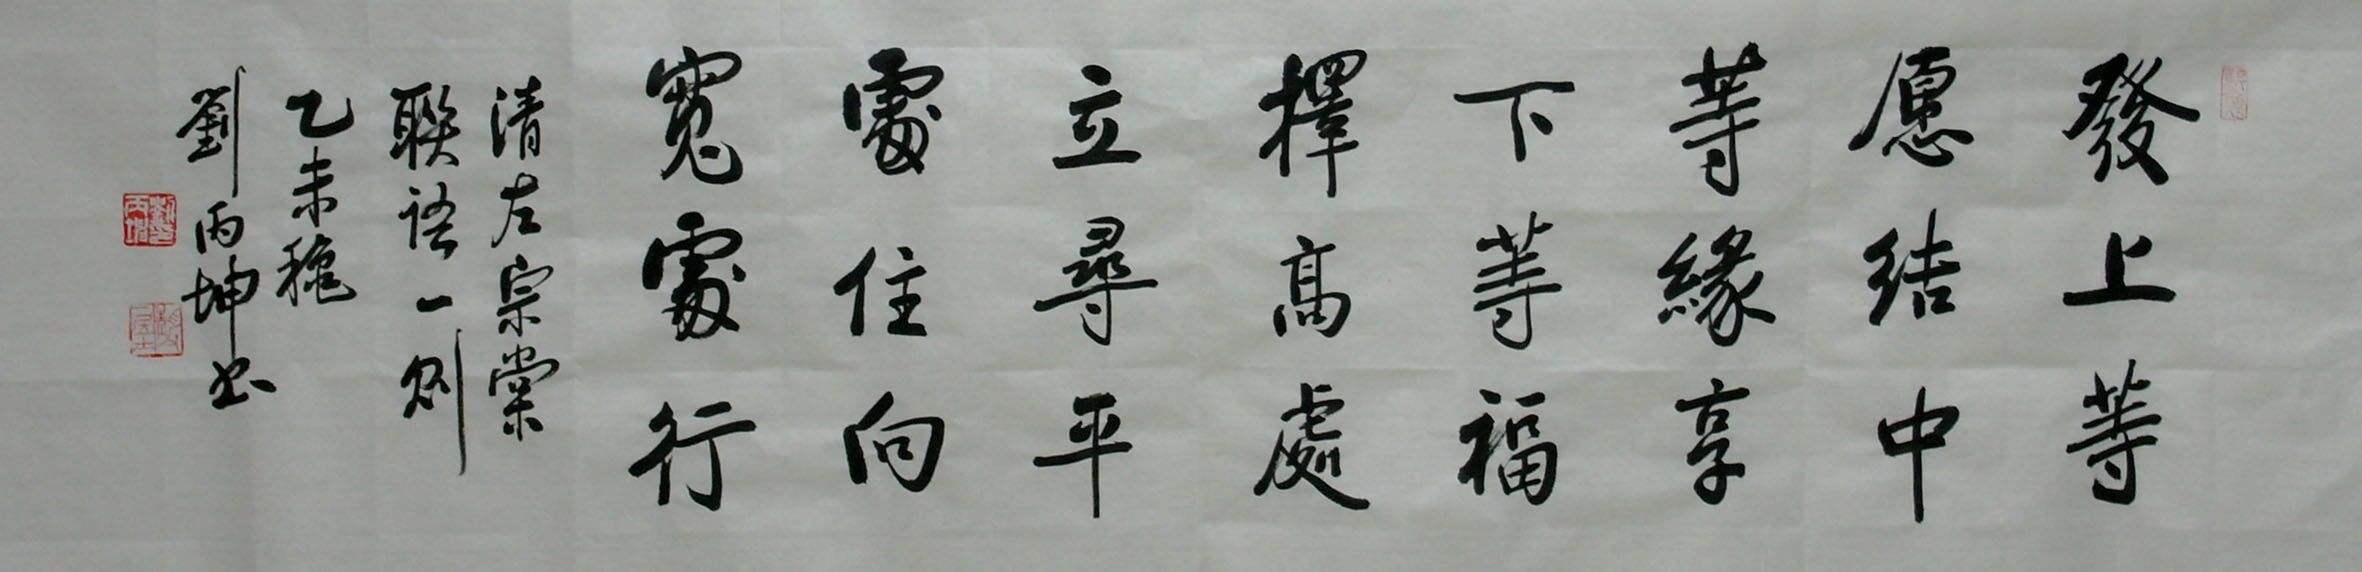 發上等
愿结中
等緣享
下等福
擇高處
立尋平
處住向
寬處行
清左宗棠
聯語一則
乙未穐
劉丙坤书